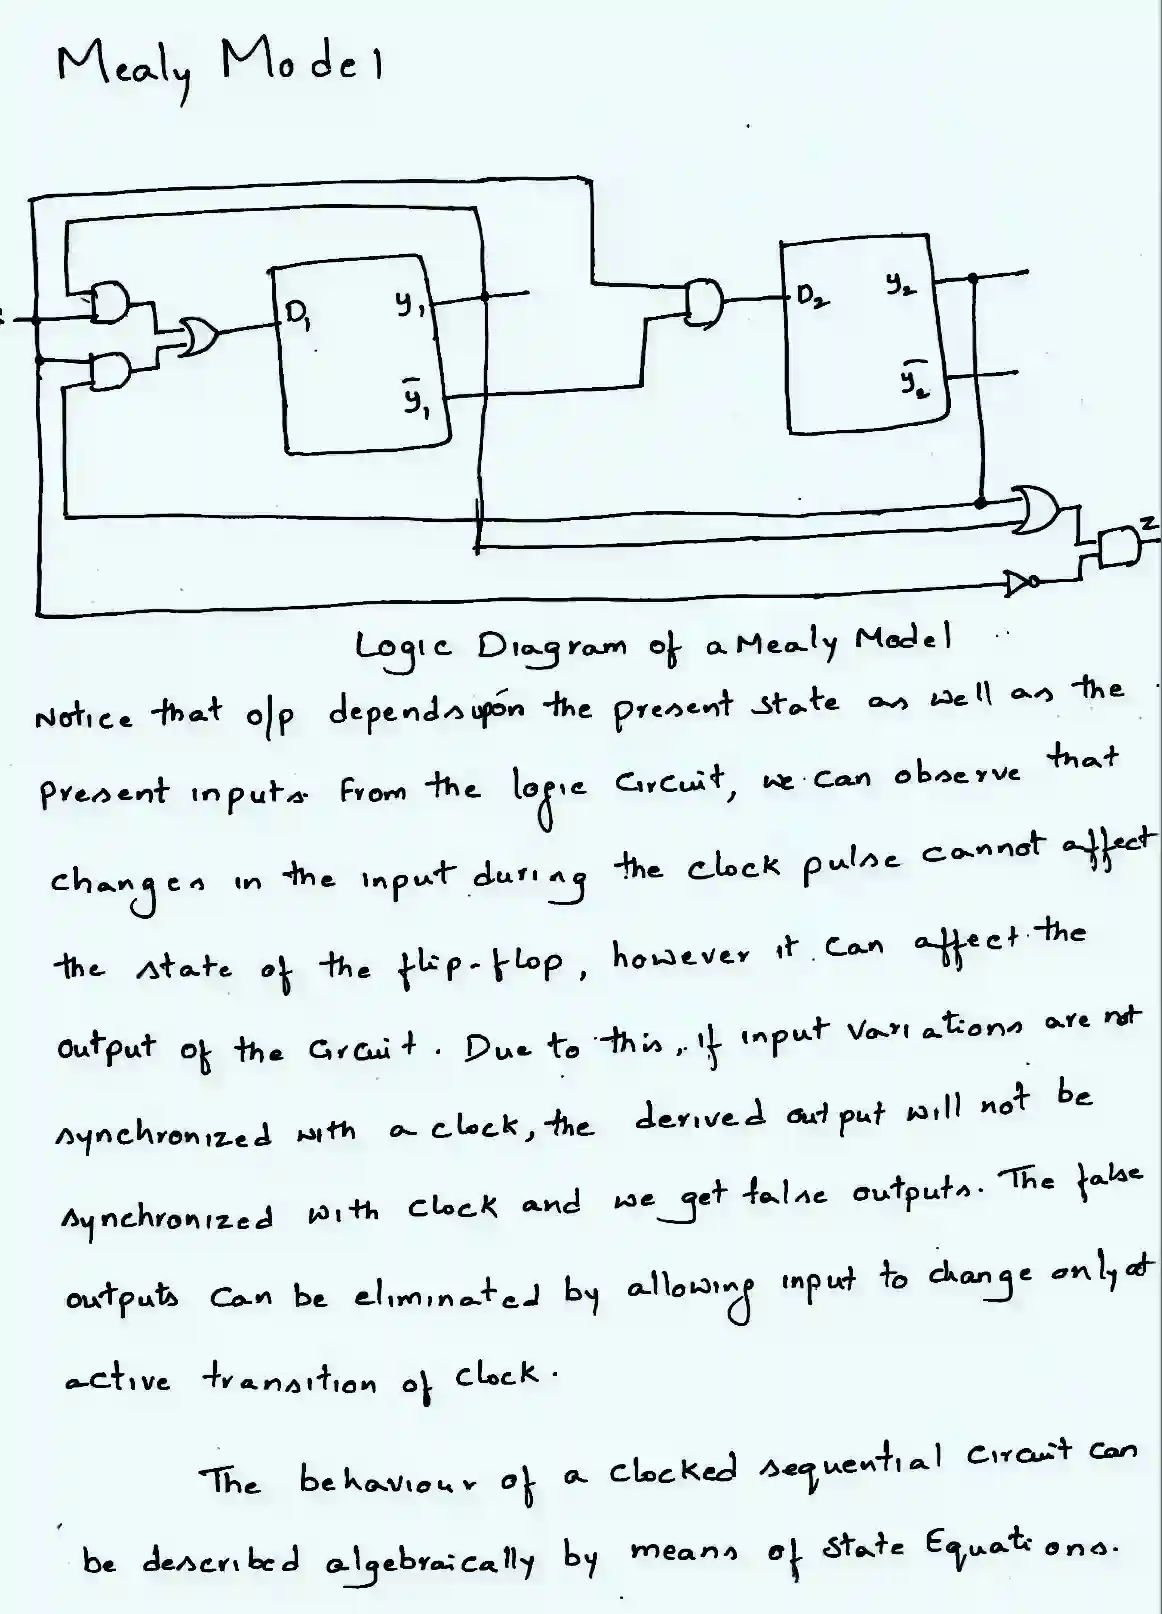 Mealy Model
D₁ y₁ y̅₁
D₂ y₂ y̅₂
z
Logic Diagram of a Mealy Model
Notice that o/p depends upon the present state as well as the
present inputs. From the logic circuit, we can observe that
changes in the input during the clock pulse cannot affect
the state of the flip-flop, however it can affect the
output of the circuit. Due to this, if input variations are not
synchronized with a clock, the derived output will not be
synchronized with clock and we get false outputs. The false
outputs can be eliminated by allowing input to change only at
active transition of clock.
The behaviour of a clocked sequential circuit can
be described algebraically by means of state Equations.